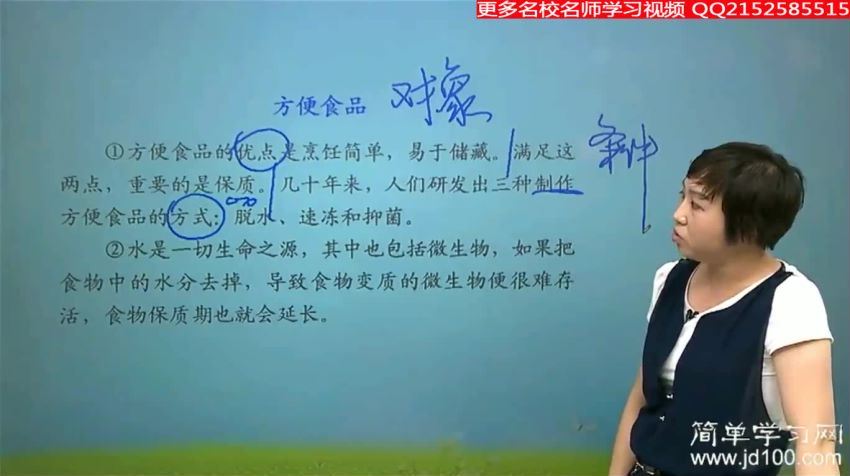 更多名校名师学习视频 QQ2152585515
方便食品 对象
①方便食品的优点是烹饪简单，易于储藏。满足这
条件
两点，重要的是保质。几十年来，人们研发出三种制作
方便食品的方式：脱水、速冻和抑菌。
②水是一切生命之源，其中也包括微生物，如果把
食物中的水分去掉，导致食物变质的微生物便很难存
活，食物保质期也就会延长。
简单学习网
www.jd100.com